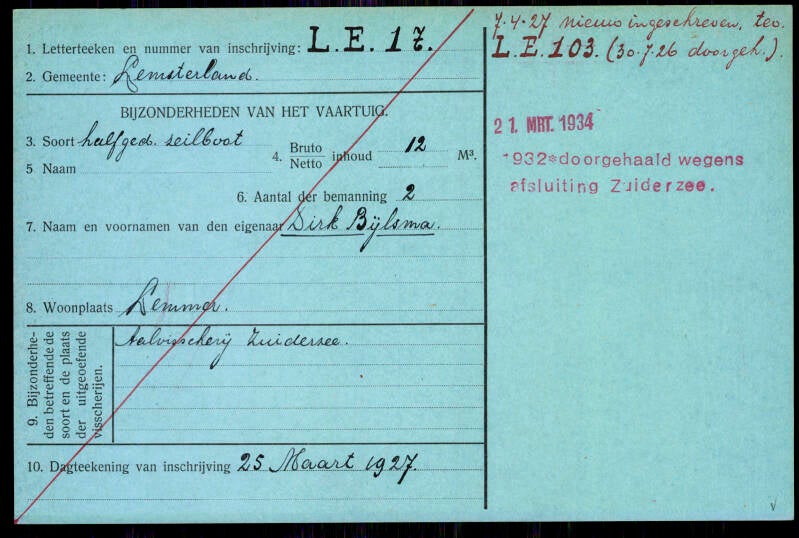 1. Letterteeken en nummer van inschrijving: L.E. 17.
2. Gemeente: Lemsterland.
BIJZONDERHEDEN VAN HET VAARTUIG.
3. Soort halfged. zeilboot
4. Bruto Netto inhoud 12 M³.
5 Naam
6. Aantal der bemanning 2
7. Naam en voornamen van den eigenaar Dirk Bijlsma.
8. Woonplaats Lemmer.
9. Bijzonderhe-
den betreffende de
soort en de plaats
der uitgeoefende
visscherijen.
Aalvisscherij Zuiderzee.
10. Dagteekening van inschrijving 25 Maart 1927.
7.4-27 nieuw ingeschreven, tev.
L.E. 103. (30.7.26 doorgeh.).
21. MRT. 1934
1932 doorgehaald wegens
afsluiting Zuiderzee.